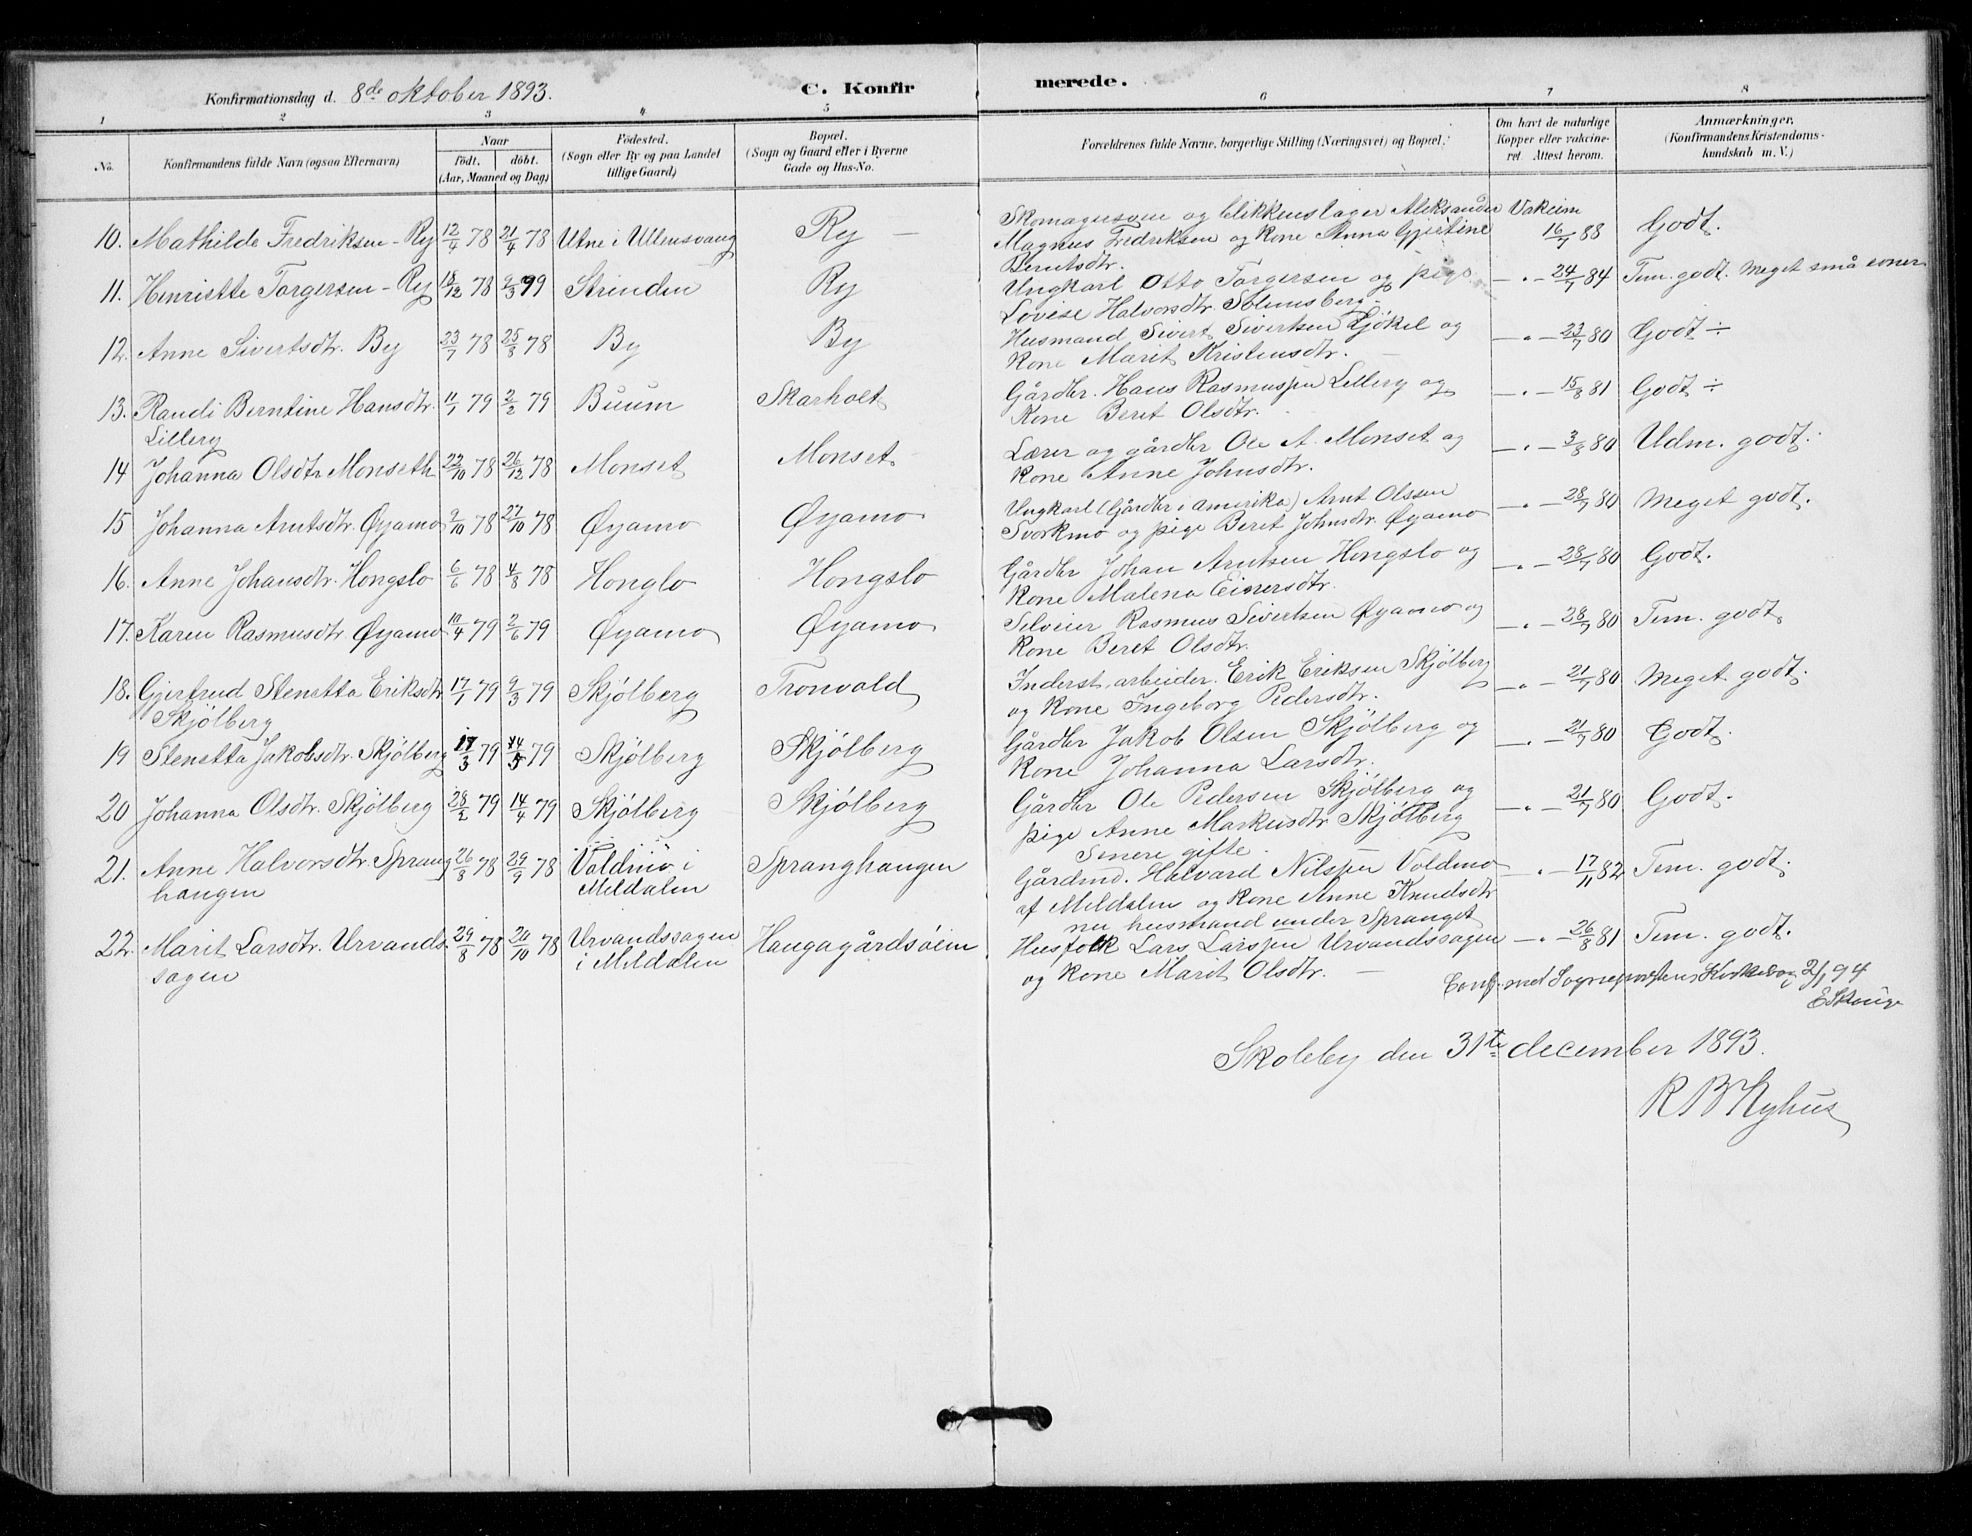 Konfirmationsdag d. 8de oktober 1893. C. Konfirmerede.
1 2 3 4 5 6 7 8
No. Konfirmandens fulde Navn (ogsaa Efternavn) Naar födt. döbt. (Aar, Maaned og Dag) Födested. (Sogn eller By og paa Landet tillige Gaard) Bopæl. (Sogn og Gaard eller i Byerne Gade og Hus-No. Forældrenes fulde Navne, borgerlige Stilling (Næringsvei) og Bopæl. Om havt de naturlige Kopper eller vakcineret. Attest herom. Anmærkninger. (Konfirmandens Kristendomskundskab m. V.)
10. Mathilde Fredriksen - Ry 12/4 78 21/4 78 Utne i Ullensvang Ry — Skomagersven og blikkenslager Aleksander Vakcin 16/7 88 Godt.
Magnus Fredriksen og kone Anna Gjertine
Berntsdtr.
11. Henriette Torgersen - Ry 18/12 78 9/3 79 Strinden Ry Ungkarl Otto Torgersen og pige — " — 24/7 84 Tem. godt. Meget små evner
Lovise Halvorsdtr. Solemsberg -
12. Anne Sivertsdtr. By 23/7 78 25/8 78 By By Husmand Sivert Sivertsen Gjökel og — " — 23/7 80 Godt ÷
kone Marit Kristensdtr. —
13. Randi Berntine Hansdtr. 11/1 79 2/2 79 Buum Skarholt Gårdbr. Hans Rasmussen Lillery og — " — 15/8 81 Godt ÷
Lillery Kone Beret Olsdtr.
14 Johanna Olsdtr Monseth 22/10 78 26/12 78 Monset Monset. Lærer og gårdbr Ole A. Monset og — " — 3/8 80 Udm. godt.
kone Anne Johnsdtr.
15 Johanna Arntsdtr. Øyamo 2/10 78 27/10 78 Øyamo Øyamo Ungkarl (Gårdbr i Amerika) Arnt Olssen — " — 28/7 80 Meget godt.
Svorkmo og pige Beret Johnsdtr. Øyamo
16. Anne Johansdtr. Hongslo 6/6 78 4/8 78 Honglo Hongslo Gårdbr Johan Arntsen Hongslo og — " — 28/7 80 Godt.
kone Malena Einersdtr.
17. Karen Rasmusdtr. Øyamo 10/4 79 2/6 79 Øyamo Øyamo Selveier Rasmus Sivertsen Øyamo og — " — 28/7 80 Tem. godt.
kone Beret Olsdtr.
18. Gjertrud Stenetta Eriksdtr 17/1 79 9/3 79 Skjölberg Tronvold Inderst, arbeider Erik Eriksen Skjölberg — " — 21/7 80 Meget godt.
Skjölberg og kone Ingeborg Pedersdtr.
19 Stenetta Jakobsdtr. Skjölberg 17/3 79 14/5 79 Skjölberg Skjölberg Gårdbr Jakob Olsen Skjölberg og — " — 21/7 80 Godt.
kone Johanna Larsdtr.
20 Johanna Olsdtr. Skjölberg 28/2 79 14/4 79 Skjölberg Skjölberg Gårdbr Ole Pedersen Skjölberg og — " — 21/7 80 Godt.
pige Anne Markusdtr Skjölberg
Senere gifte.
21. Anne Halvorsdtr. Sprang 26/8 78 29/9 78 Voldmo i Spranghaugen Gårdmd. Halvard Nilssen Voldmo — " — 17/11 82 Tem. godt.
haugen Meldalen af Meldalen og kone Anne Knudsdtr
nu husmand under Spranget
22. Marit Larsdtr. Urvands 29/8 78 20/10 78 Urvandssagen Haugagårdsöien Husfolk Lars Larssen Urvandssagen — " — 26/8 81 Tem. godt.
sagen i Meldalen og kone Marit Olsdtr. —
Conf. med Sognepræstens Kirkebog 2/1 94
Skoleby den 31te december 1893.
R B Nyhus